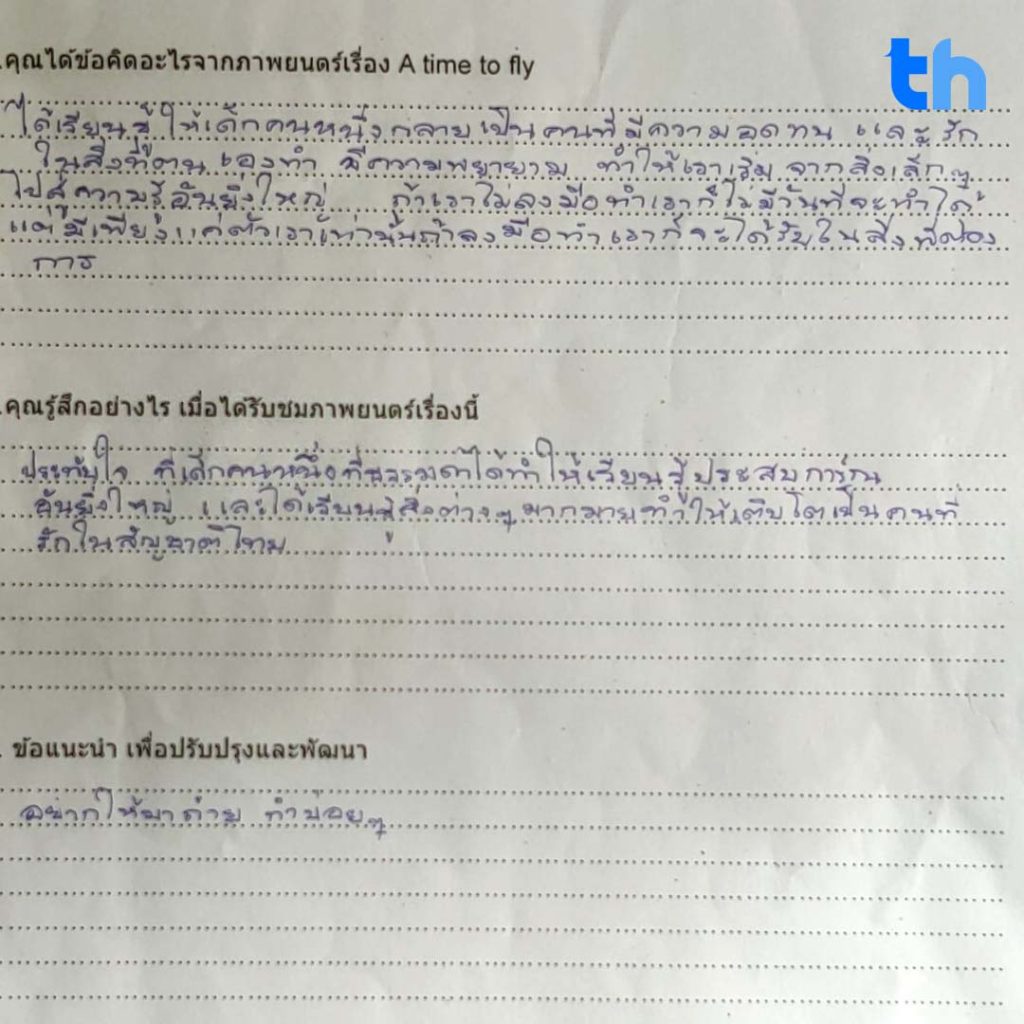 .คุณได้ข้อคิดอะไรจากภาพยนตร์เรื่อง A time to fly
th
ได้เรียนรู้ ให้เด็กคนหนึ่งกลายเป็นคนที่มีความอดทน และรัก
ในสิ่งที่ตนเองทำ มีความพยายาม ทำให้เราเริ่มจากสิ่งเล็กๆ
ไปสู่ความรู้อันยิ่งใหญ่ ถ้าเราไม่ลงมือทำเราก็ไม่มีวันที่จะทำได้
แต่มีเพียงแค่ตัวเราเท่านั้นถ้าลงมือทำเราก็จะได้รับในสิ่งที่ต้อง
การ
.คุณรู้สึกอย่างไร เมื่อได้รับชมภาพยนตร์เรื่องนี้
ประทับใจ ที่เด็กคนหนึ่งที่ธรรมดาได้ทำให้เรียนรู้ประสบการ์ณ
อันยิ่งใหญ่ และได้เรียนรู้สิ่งต่างๆมากมายทำให้เติบโตเป็นคนที่
รักในสัญชาติไทย
. ข้อแนะนำ เพื่อปรับปรุงและพัฒนา
อยากให้มาถ่าย ทำบ่อยๆ